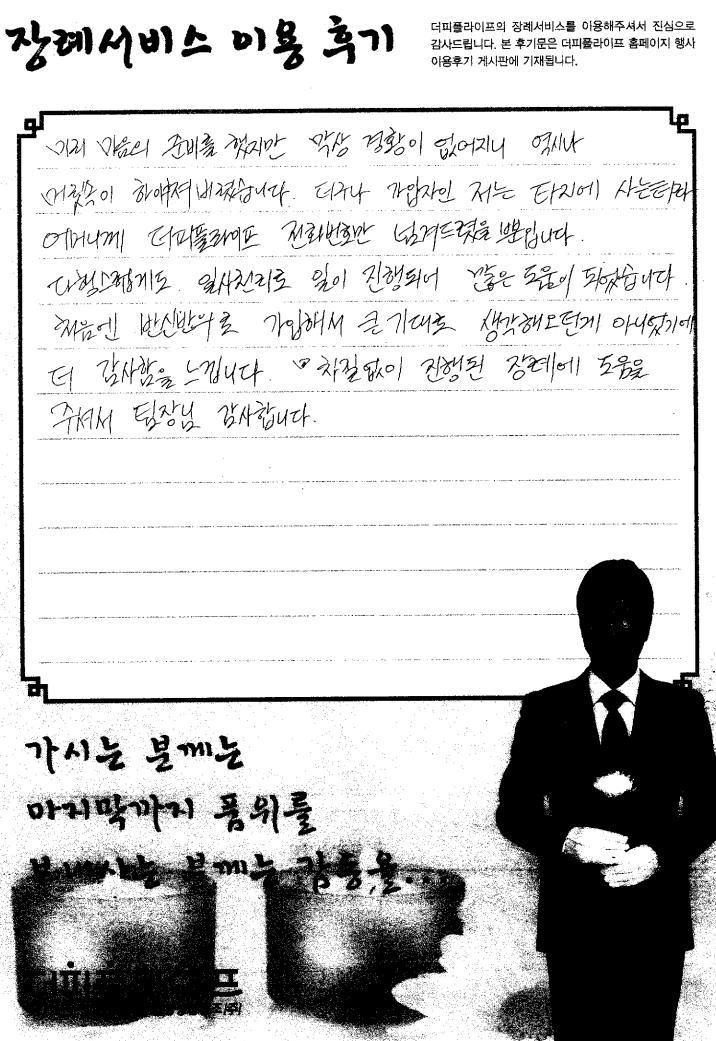 장례서비스 이용 후기
더피플라이프의 장례서비스를 이용해주셔서 진심으로
감사드립니다. 본 후기문은 더피플라이프 홈페이지 행사
이용후기 게시판에 기재됩니다.
미리 마음의 준비를 했지만 막상 경황이 없어지니 역시나
머릿속이 하얘져 버렸습니다. 더구나 가입자인 저는 타지에 사는터라
어머니께 더피플라이프 전화번호만 넘겨드렸을 뿐입니다.
다행스럽게도 일사천리로 일이 진행되어 많은 도움이 되었습니다.
처음엔 반신반의로 가입해서 큰 기대로 생각해오던게 아니었기에
더 감사함을 느낍니다. 차질없이 진행된 장례에 도움을
주셔서 팀장님 감사합니다.
가시는 분께는
마지막까지 품위를
보내시는 분께는 감동을...
더피플라이프